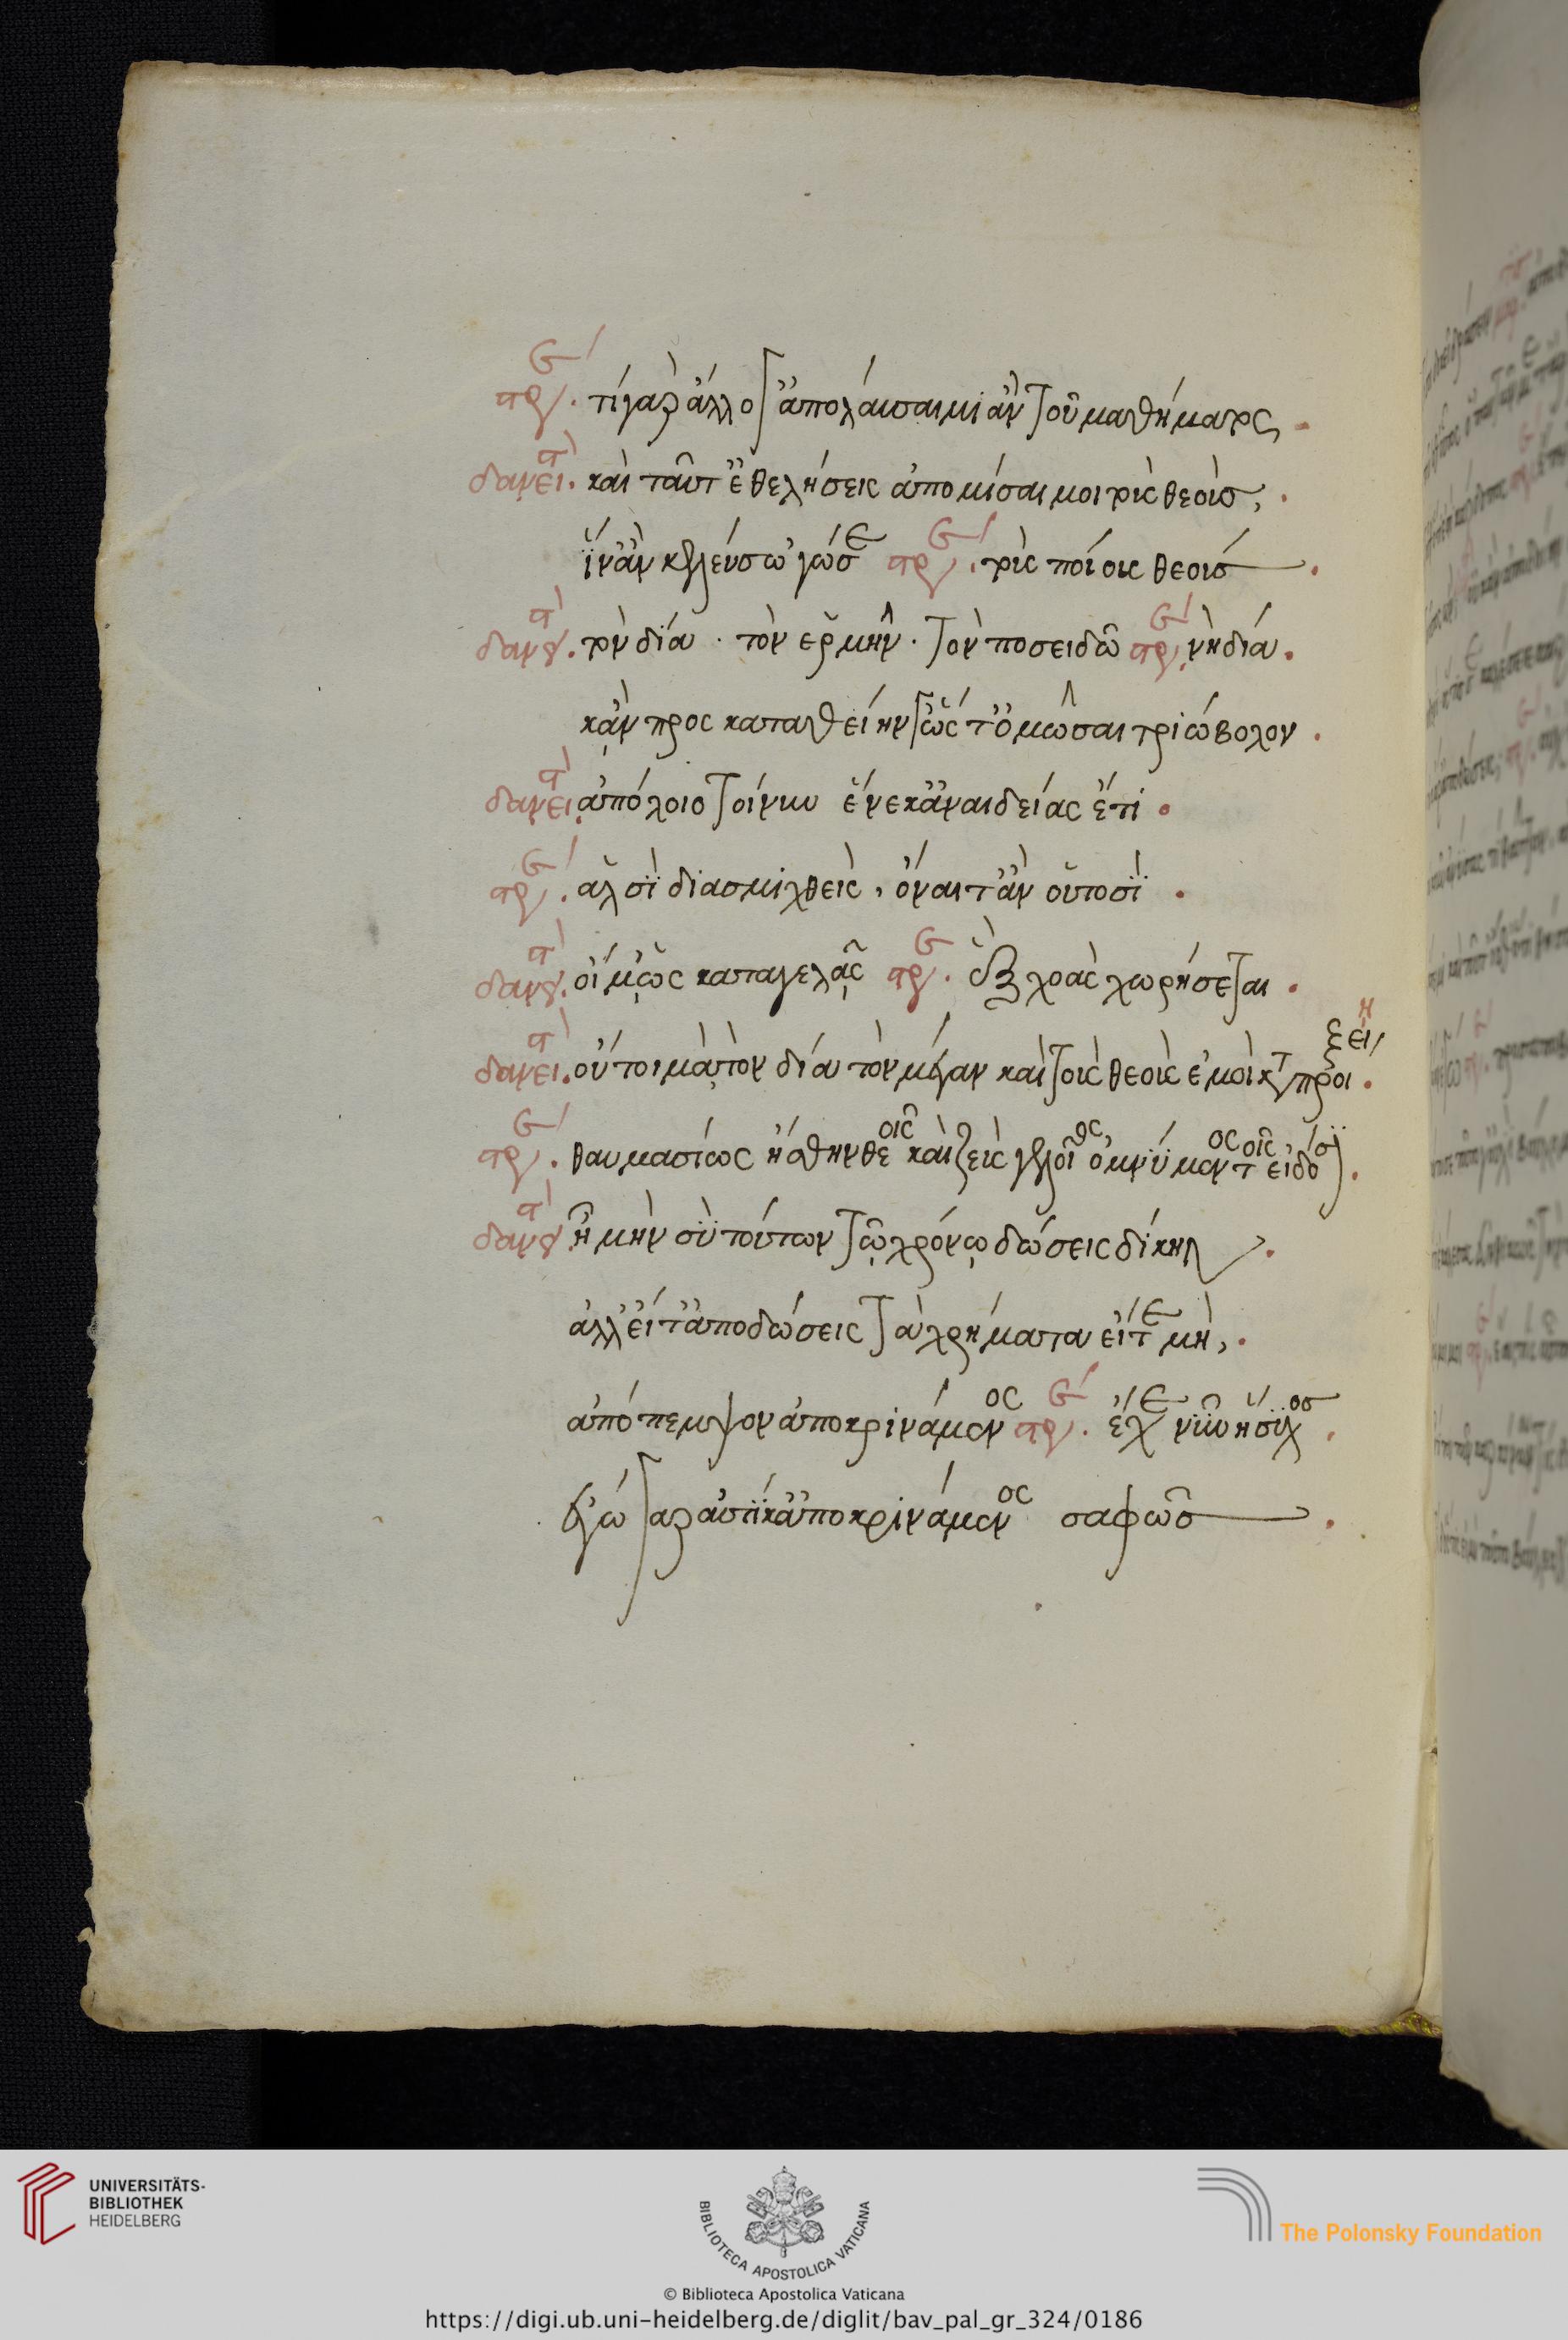 πρε̅ς. τί γαρ ἄλλο γ' ἂν ἀπολαύσαιμι ἂν τοῦ μαθήματος,
δανει. καὶ ταῦτ' ἐθελήσεις ἀπομόσαι μοι τοὺς θεοὺς,
ἵν' ἂν κελεύσω 'γώ σε πρες. τοὺς ποίους θεούς
δανει. τὸν δία. τὸν ἑρμῆν. τὸν ποσειδῶ πρες. νὴ δία.
κἂν προς καταθείην γ' ὥστ' ὀμόσαι τριώβολον.
δανει. ἀπόλοιο τοίνυν ἕνεκ' ἀναιδείας ἔτι.
πρες. ἁλσὶ διασμηχθεὶς, ὄναιτ' ἂν οὑτοσί.
δανει. οἴμ' ὡς καταγελᾷς πρες. ἓξ χοὰς χωρήσεται.
δανει. οὔτοι μὰ τὸν δία τὸν μέγαν καὶ τοὺς θεοὺς ἐμοῦ καταπροίξει.
πρες. θαυμασίως ἥσθην θεοῖς καὶ ζεὺς γελοῖος ὀμνύμενος τοῖς εἰδόσι.
δανει. ἦ μὴν σὺ τούτων τῷ χρόνῳ δώσεις δίκην.
ἀλλ' εἴτ' ἀποδώσεις τὰ χρήματα εἴτε μὴ,
ἀπόπεμψον ἀποκρινάμενος πρες. ἔχε νῦν ἥσυχος.
ἐγὼ γαρ αὐτίκ' ἀποκρινάμενος σαφῶς.
UNIVERSITÄTS-
BIBLIOTHEK
HEIDELBERG
BIBLIOTECA APOSTOLICA VATICANA
The Polonsky Foundation
© Biblioteca Apostolica Vaticana
https://digi.ub.uni-heidelberg.de/diglit/bav_pal_gr_324/0186